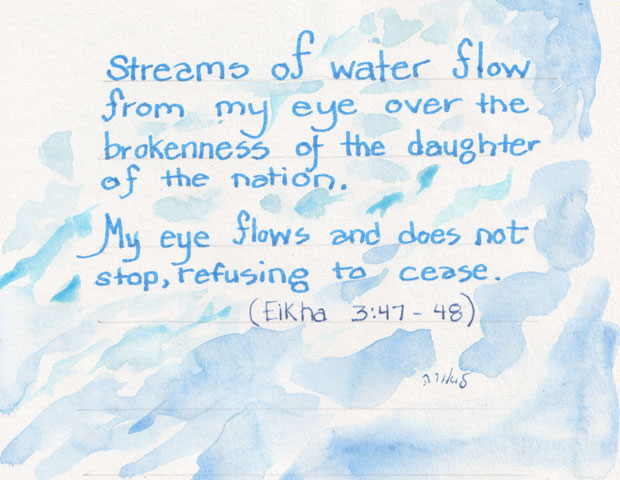 Streams of water flow
from my eye over the
brokenness of the daughter
of the nation.
My eye flows and does not
stop, refusing to cease.
(Eikha 3:47-48)